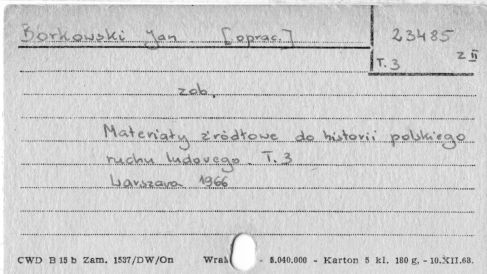 Borkowski Jan [oprac.]
23485
z II
T. 3
zob.
Materiały źródłowe do historii polskiego
ruchu ludowego. T. 3
Warszawa 1966
CWD B 15 b Zam. 1537/DW/On - 5.040.000 - Karton 5 kl. 180 g, - 10.XII.68.